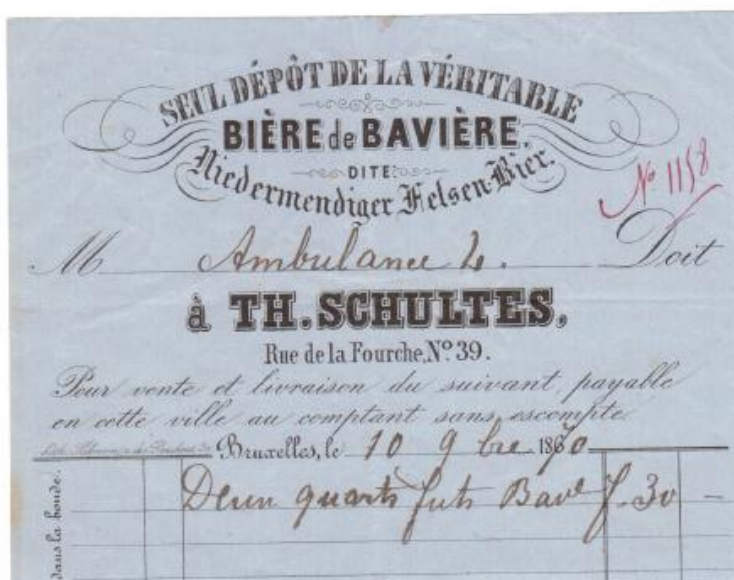 SEUL DÉPÔT DE LA VÉRITABLE
BIÈRE de BAVIÈRE.
DITE:
Niedermendiger Felsen-Bier.
No 1158
M Ambulance 2. Doit
à TH. SCHULTES,
Rue de la Fourche, No 39.
Pour vente et livraison du suivant, payable
en cette ville au comptant sans escompte.
Bruxelles, le 10 9bre 1870
Deux quarts futs Bavre f. 30 —
dans la bonde.